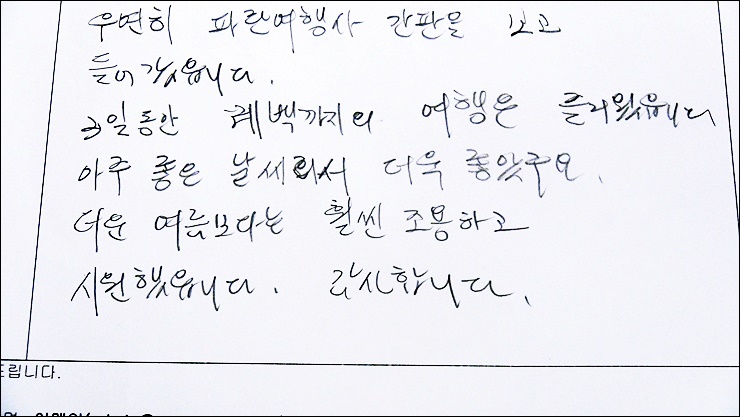 우연히 파란여행사 간판을 보고
들어갔읍니다.
3일동안 퀘벡까지의 여행은 즐거웠읍니다
아주 좋은 날씨라서 더욱 좋았구요.
더운 여름보다는 훨씬 조용하고
시원했읍니다. 감사합니다.
드립니다.